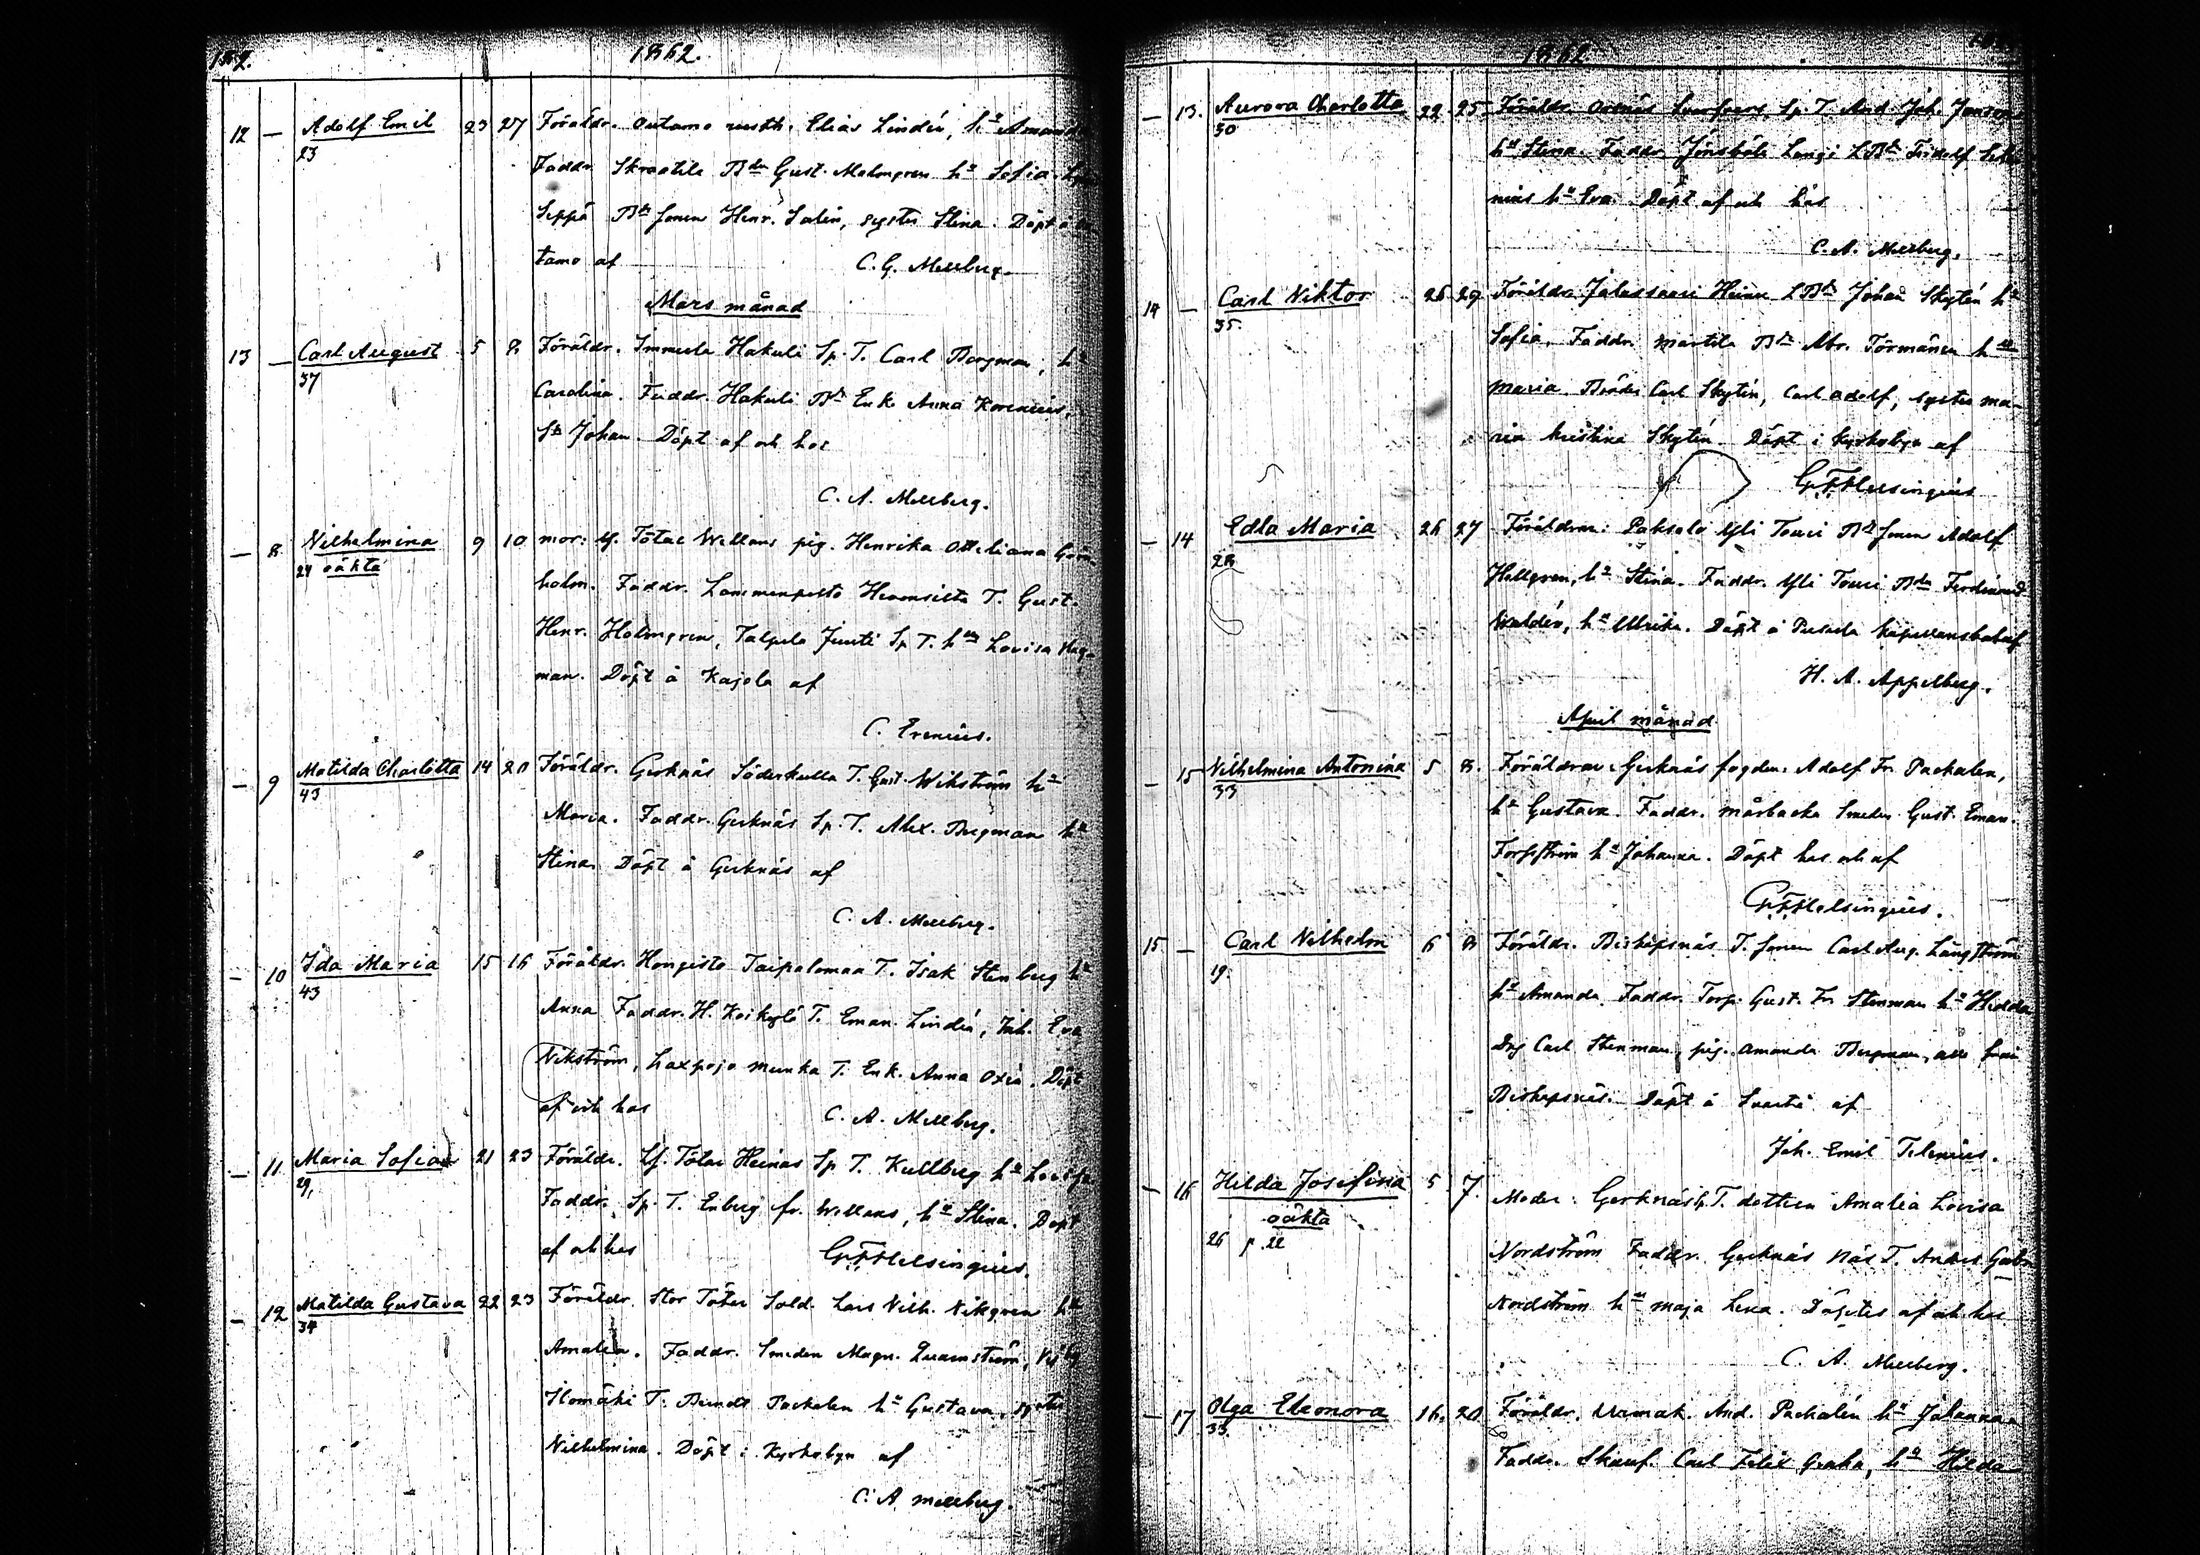 1862.
12 — Adolf Emil 23 27 Föräldr. Outamo rusth. Elias Lindén, hu Amanda
23 Faddr. Skraatila Bdn Gust. Malmgren hu Sofia.
Seppä Bd sonen Henr. Salin, syster Stina. Döpt å
tamo af C. G. Mellberg.
Mars månad
13 — Carl August 5 8. Föräldr. Immula Hakuli Sp. T. Carl Bergman, hu
37 Carolina. Faddr. Hakuli Bd Enk. Anna
Sn Johan. Döpt af och hos
C. A. Mellberg.
— 8. Wilhelmina 9 10 mor: Lf. Tötar Wellars pig. Henrika Ottiliana
24 oäkta holm. Faddr. Lammenpelto T. Gust.
Henr. Holmgren, Talpela Juuti Sp T. hu Lovisa
man. Döpt å Kajola af
C. Erenius.
— 9 Matilda Charlotta 14 20 Föräldr. Gerknäs Söderkulla T. Gust. Wikström hu
43 Maria. Faddr. Gerknäs Sp. T. Alex. Bergman hu
Stina. Döpt å Gerknäs af
C. A. Mellberg.
— 10 Ida Maria 15 16 Föräldr. Hongisto Taipalemaa T. Isak Stenberg hu
43 Anna Faddr. H. Koikylö T. Eman. Lindén, Joh. Eva
Wikström, Laxpojo Munka T. Enk. Anna Oxén. Döpt
af och hos C. A. Mellberg.
— 11 Maria Sofia 21 23 Föräldr. Lf. Tötar Heinas Sp T. Kullberg hu Lovisa
29, Faddr. Sp. T. Enberg fr. Wellars, hu Stina. Döpt
af och hos G. F. Helsingius.
— 12 Matilda Gustava 22 23 Föräldr. Stor Töter Sold. Lars Wilh. Wikgren hu
34 Amalia. Faddr. Smeden Magn. Quarnström,
Ilomäki T. Berndt Packalen hu Gustava, syster
Wilhelmina. Döpt i Kyrkobyn af
C. A. Mellberg.
1862.
— 13. Aurora Charlotta 22. 25 Föräldr. Sp. T. And. Joh. Jonson
50 hu Stina. Faddr. Jönsböle Längi LBdn Fridolf
nius hu Eva. Döpt af och hos
C. A. Mellberg.
14 — Carl Viktor 26 29 Föräldr. Jalassaari Heimo LBdn Johan Skytén hu
35. Sofia. Faddr. Martila Bdn Abr. Törmänen hu
Maria. Bröder Carl Skytén, Carl Adolf, syster Ma-
ria Kristina Skytén. Döpt i Kyrkobyn af
G. F. Helsingius
— 14 Edla Maria 26 27 Föräldrar: Paksalo Yli Touri Bd sonen Adolf
28 Hellgren, hu Stina. Faddr. Yli Touri Bdn Ferdinand
Waldén, hu Ulrika. Döpt å Pusula Kapellansbohl af
H. A. Appelberg.
April månad
— 15 Wilhelmina Antonina 5 8. Föräldrar: Gerknäs fogden Adolf Fr. Packalen,
33 hu Gustava. Faddr. Mårbacka Smeden Gust. Eman.
Forsström hu Johanna. Döpt hos och af
G. F. Helsingius.
15 — Carl Wilhelm 6 8 Föräldr. Biskopsnäs T. sonen Carl Aug. Långström
19. hu Amanda. Faddr. Torp. Gust. Fr. Stenman hu Hedda
Dng Carl Stenman, pig. Amanda Bergman, alla från
Biskopsnäs. Döpt å Svartå af
Joh. Emil Telenius.
— 16 Hilda Josefina 5 7. Moder: Gerknäs Sp. T. dottren Amalia Lovisa
oäkta Nordström Faddr. Gerknäs Näs T. Anders Gabr.
26 p. 22 Nordström hu Maja Lena. Döptes af och hos
C. A. Mellberg.
— 17 Olga Eleonora 16. 20 Föräldr. Urmak. And. Packalén hu Johanna
33. Faddr. Skarf. Carl Felix Graha, hu Hilda